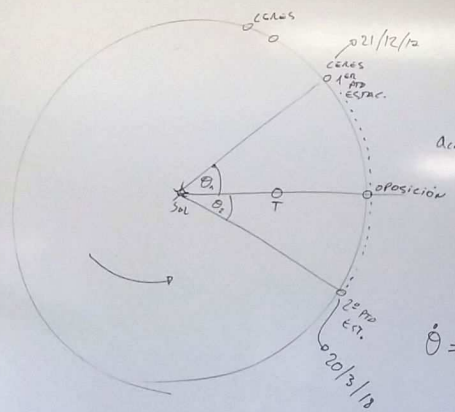 CERES
21/12/17
CERES
1ER
PTO
ESTAC.
θ1
SOL
θ2
T
OPOSICIÓN
2º PTO
EST.
20/3/18
θ̇ =